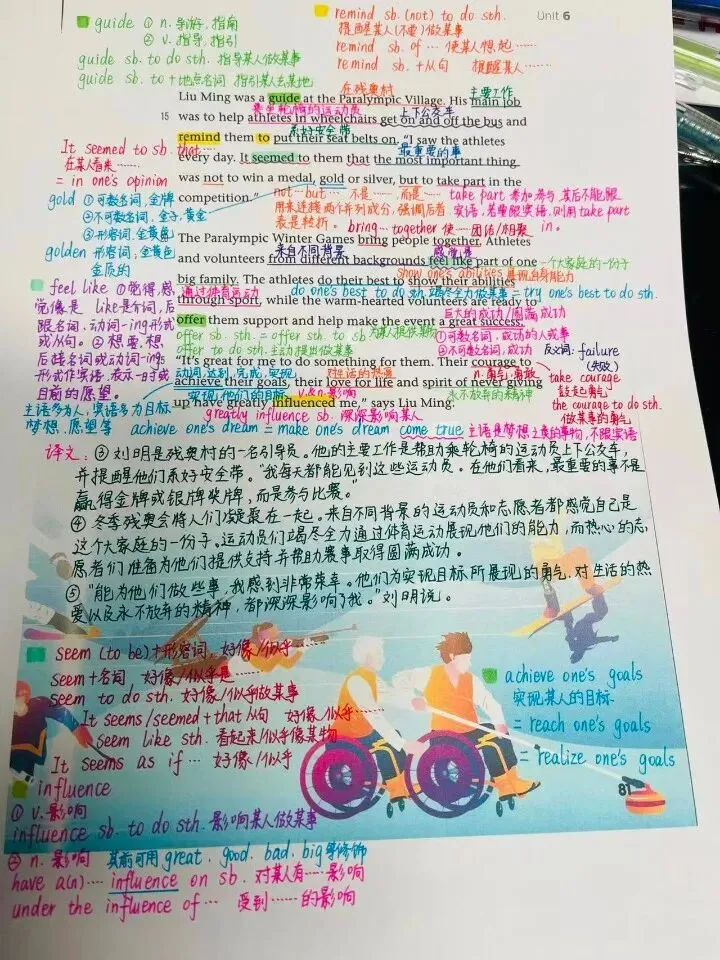 guide ① n. 导游, 指南
② v. 指导, 指引
guide sb. to do sth. 指导某人做某事
guide sb. to +地点名词 指引某人去某地
remind sb. (not) to do sth.
提醒某人(不要)做某事
remind sb. of … 使某人想起……
remind sb. +从句 提醒某人……
Unit 6
在残奥村
主要工作
Liu Ming was a guide at the Paralympic Village. His main job
乘坐轮椅的运动员
上下公交车
15 was to help athletes in wheelchairs get on and off the bus and
系好安全带
remind them to put their seat belts on. "I saw the athletes
最重要的事
every day. It seemed to them that the most important thing
was not to win a medal, gold or silver, but to take part in the
competition."
It seemed to sb. that…
在某人看来……
= in one's opinion
gold ① 可数名词, 金牌
② 不可数名词, 金子, 黄金
③ 形容词, 金黄色
golden 形容词, 金黄色
金质的
not… but… 不是……而是……
用来连接两个并列成分, 强调后者,
表是转折.
take part 参加参与, 其后不能跟
宾语, 若要跟宾语, 则用take part
in.
bring… together 使…团结/相聚
The Paralympic Winter Games bring people together. Athletes
来自不同背景
感觉是
and volunteers from different backgrounds feel like part of one
一个大家庭的一份子
big family. The athletes do their best to show their abilities
show one's abilities 展现自身能力
通过体育运动
do one's best to do sth. 竭尽全力做某事 = try one's best to do sth.
through sport, while the warm-hearted volunteers are ready to
巨大的成功/圆满成功
offer them support and help make the event a great success.
offer sb. sth. = offer sth. to sb. 为某人提供某物
offer to do sth. 主动提出做某事
① 可数名词, 成功的人或事
② 不可数名词, 成功
反义词: failure
(失败)
feel like ① 觉得, 感
觉像是 like是介词, 后
跟名词, 动词-ing形式
或从句. ② 想要, 想
后接名词或动词-ing
形式作宾语, 表示一时或
目前的愿望.
"It's great for me to do something for them. Their courage to
动词, 达到, 完成, 实现
对生活的热爱
n. 勇气, 勇敢
achieve their goals, their love for life and spirit of never giving
实现他们的目标
v.&n. 影响
永不放弃的精神
up have greatly influenced me," says Liu Ming.
take courage
鼓起勇气
the courage to do sth.
做某事的勇气
greatly influence sb. 深深影响某人
主语多为人, 宾语多为目标
梦想, 愿望等 achieve one's dream = make one's dream come true 主语是梦想之类的事物, 不跟宾语
译文: ③ 刘明是残奥村的一名引导员。他的主要工作是帮助乘轮椅的运动员上下公交车,
并提醒他们系好安全带。"我每天都能见到这些运动员。在他们看来, 最重要的事不是
赢得金牌或银牌奖牌, 而是参与比赛。"
④ 冬季残奥会将人们凝聚在一起。来自不同背景的运动员和志愿者都感觉自己是
这个大家庭的一份子。运动员们竭尽全力通过体育运动展现他们的能力, 而热心的志
愿者们准备为他们提供支持并帮助赛事取得圆满成功。
⑤ "能为他们做些事, 我感到非常荣幸。他们为实现目标所展现的勇气, 对生活的热
爱以及永不放弃的精神, 都深深影响了我。"刘明说。
seem (to be) +形容词, 好像/似乎……
seem +名词, 好像/似乎是……
seem to do sth. 好像/似乎做某事
It seems/seemed + that从句 好像/似乎……
seem like sth. 看起来/似乎像某物
It seems as if … 好像/似乎
achieve one's goals
实现某人的目标
= reach one's goals
= realize one's goals
81
influence
① v. 影响
influence sb. to do sth. 影响某人做某事
② n. 影响 其前可用 great, good, bad, big等修饰
have a(n)… influence on sb. 对某人有……影响
under the influence of … 受到……的影响